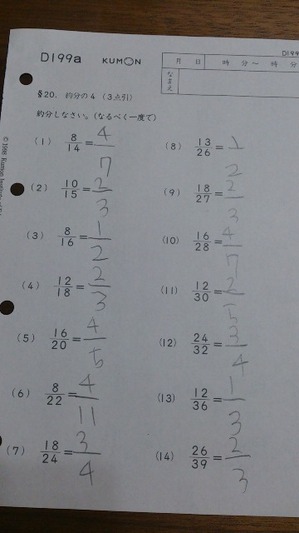 D199a KUMON
D199
月 日 時 分〜 時 分
なまえ
§20. 約分の4 (3点引)
約分しなさい。(なるべく一度で)
(1) 8/14 = 4/7
(2) 10/15 = 2/3
(3) 8/16 = 1/2
(4) 12/18 = 2/3
(5) 16/20 = 4/5
(6) 8/22 = 4/11
(7) 18/24 = 3/4
(8) 13/26 = 1/2
(9) 18/27 = 2/3
(10) 16/28 = 4/7
(11) 12/30 = 2/5
(12) 24/32 = 3/4
(13) 12/36 = 1/3
(14) 26/39 = 2/3